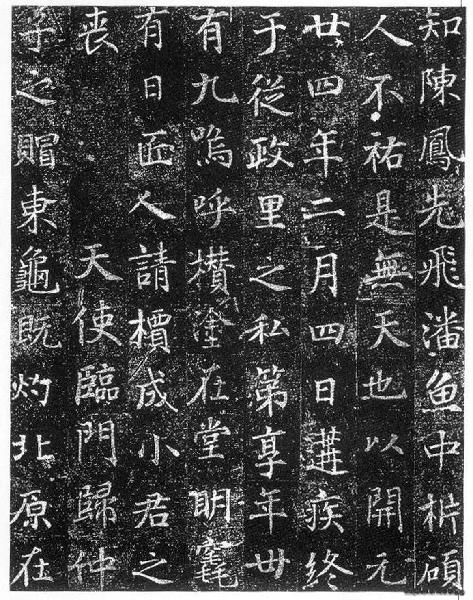 知陳鳳先飛潘魚中枿碩
人不祐是無天也以開元
廿四年二月四日遘疾終
于從政里之私第享年卌
有九嗚呼攢塗在堂明窀
有日匠人請檟成小君之
喪天使臨門歸仲
子之賵東龜既灼北原在